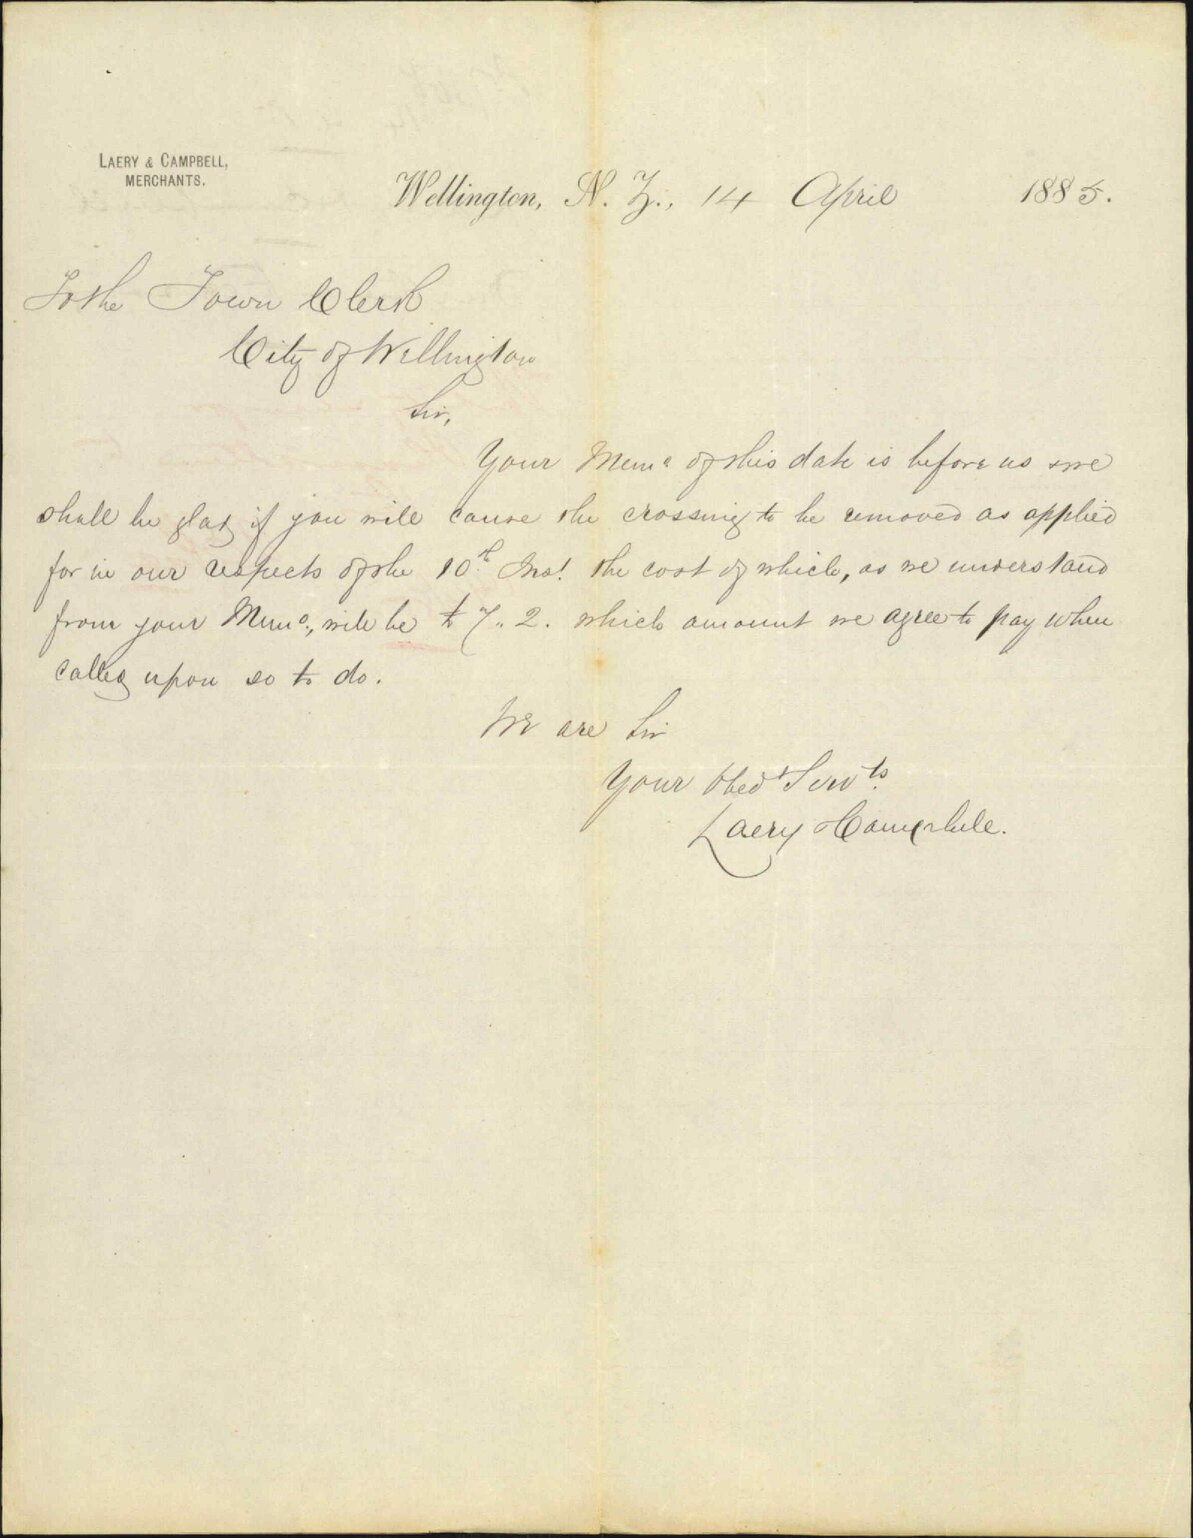 LAERY & CAMPBELL,
MERCHANTS.
Wellington, N. Z., 14 April 1885.
To the Town Clerk
City of Wellington
Sir,
Your Memo of this date is before us & we
shall be glad if you will cause the crossing to be removed as applied
for in our respects of the 10th Inst. the cost of which, as we understand
from your Memo, will be £7.. 2. which amount we agree to pay when
called upon so to do.
We are Sir
Your Obedt Servts.
Laery & Campbell.